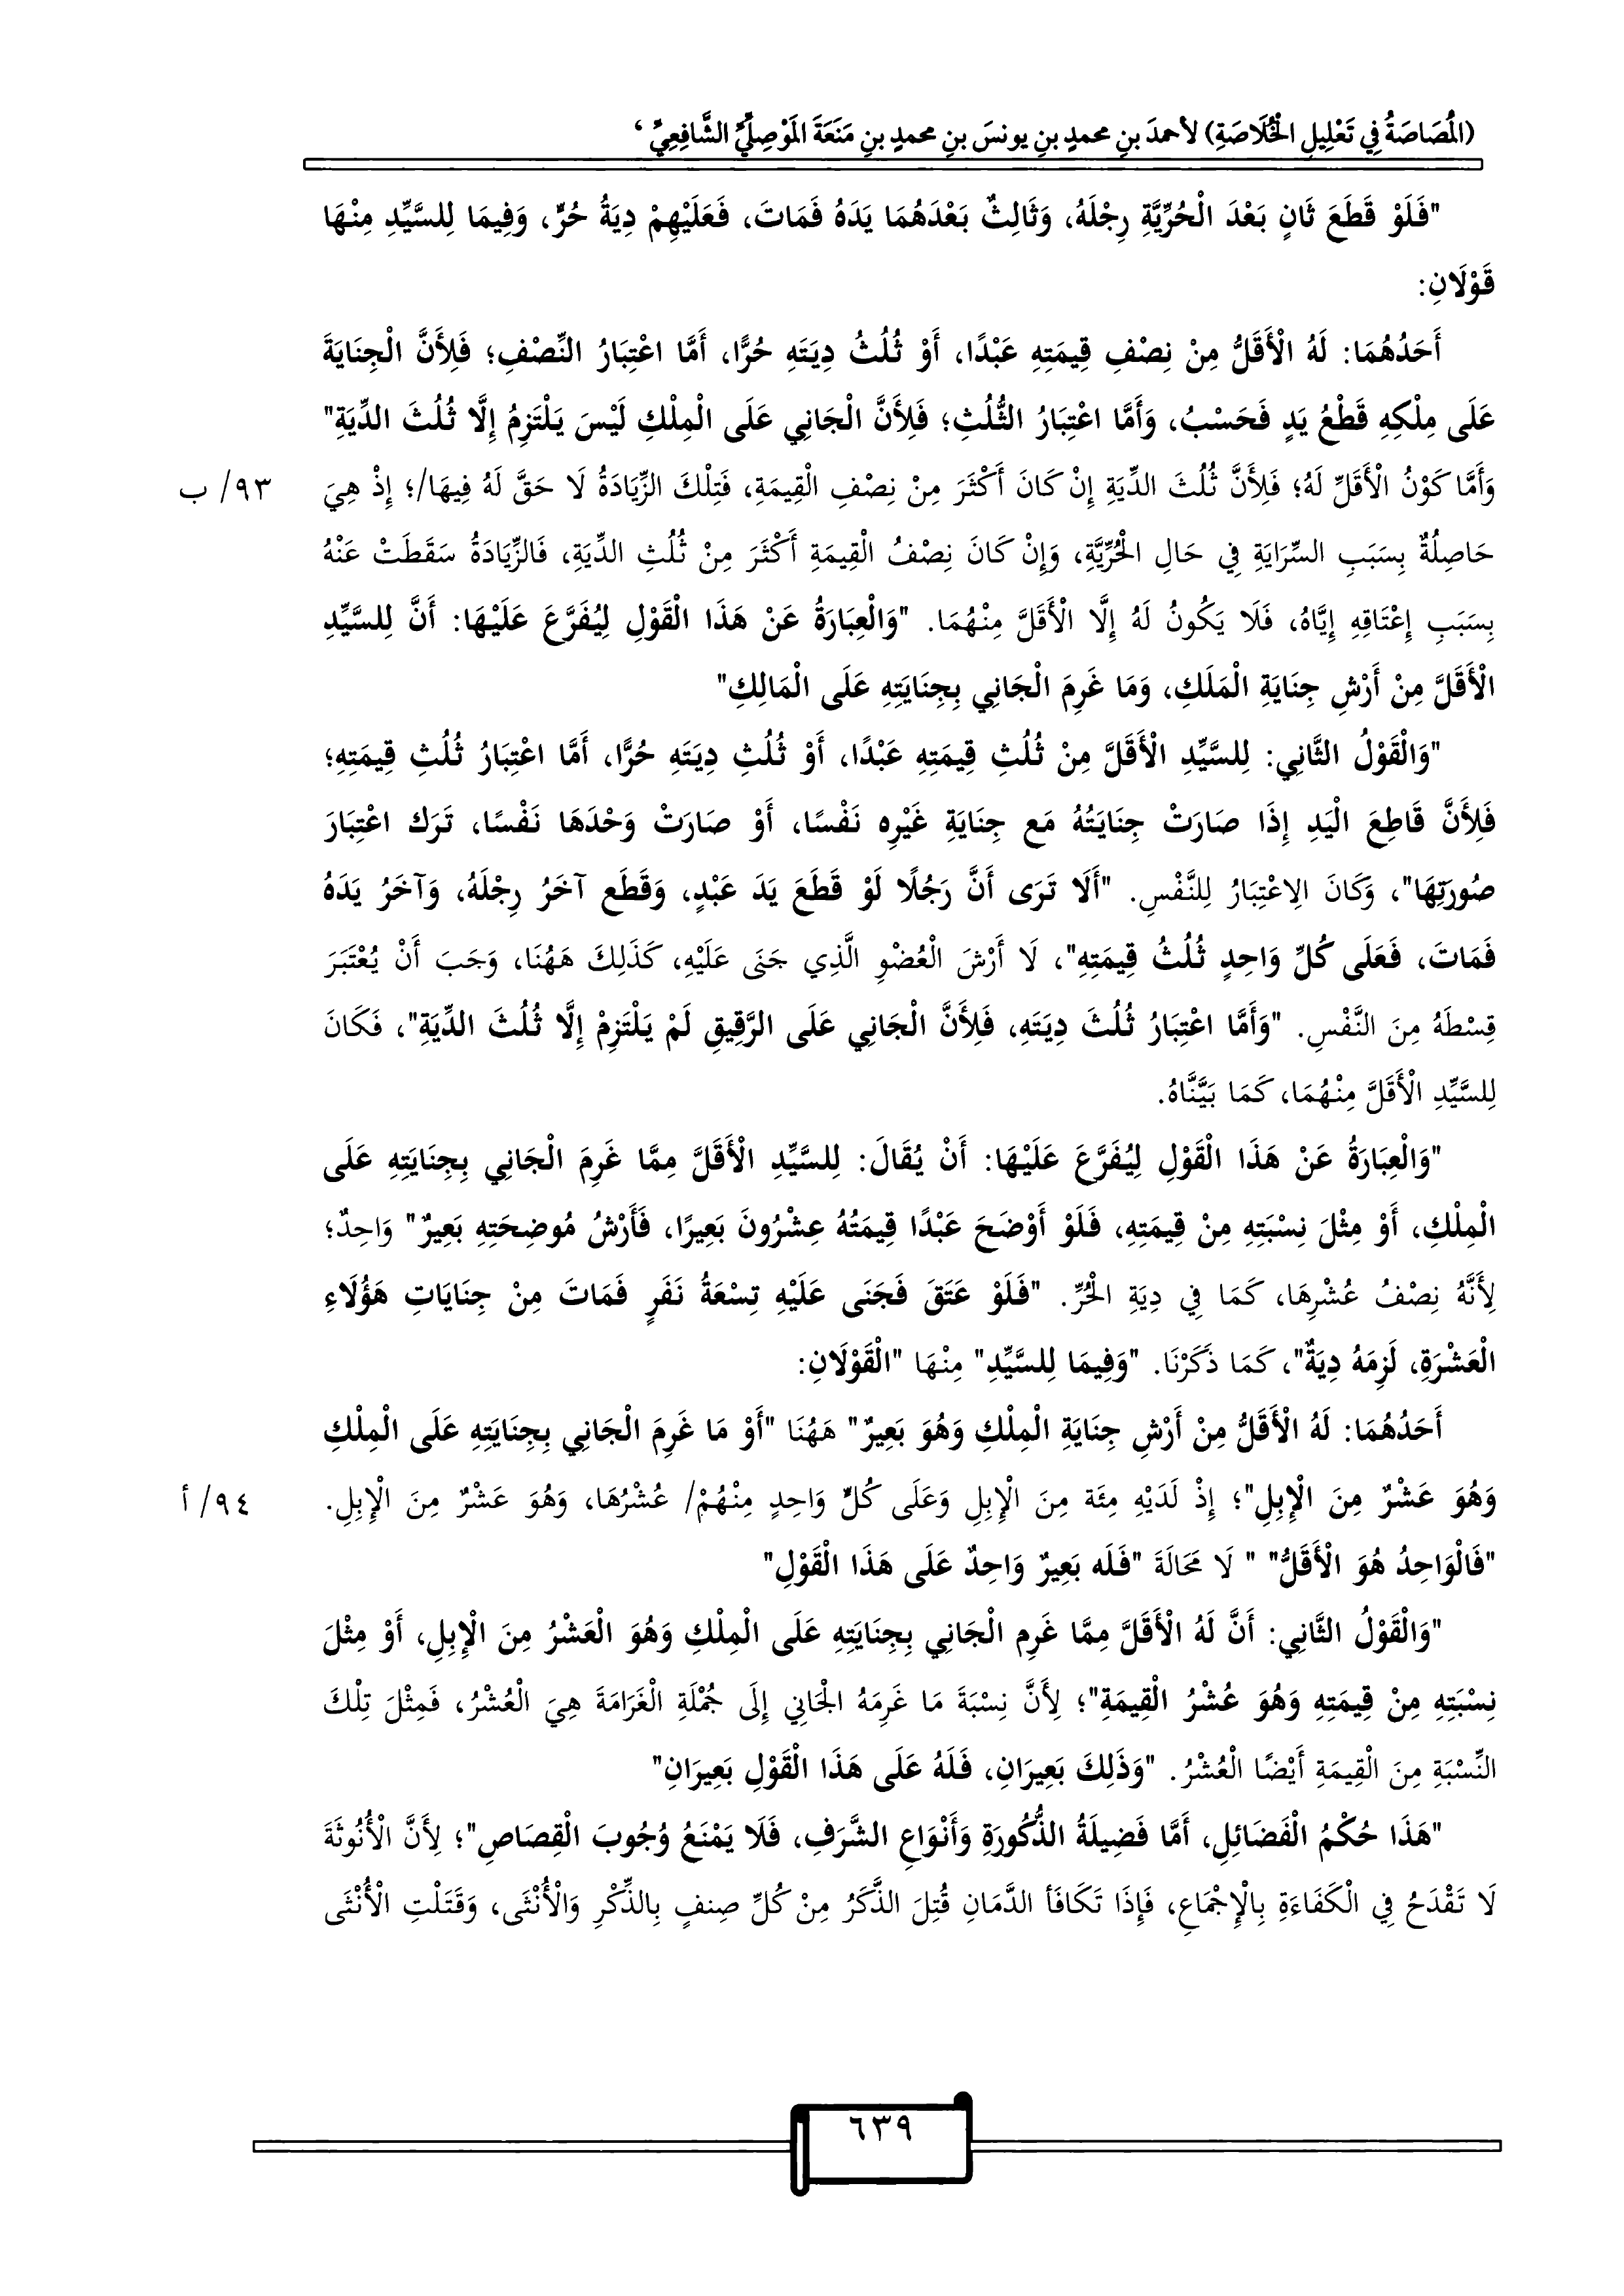 (المُصَاصَةُ فِي تَعْلِيلِ الْخُلَاصَةِ) لأحمدَ بنِ محمدِ بنِ يونسَ بنِ محمدِ بنِ مَنَعَةَ المَوْصِلِيِّ الشَّافِعِيِّ ،
"فَلَوْ قَطَعَ ثَانٍ بَعْدَ الْحُرِّيَّةِ رِجْلَهُ، وَثَالِثٌ بَعْدَهُمَا يَدَهُ فَمَاتَ، فَعَلَيْهِمْ دِيَةُ حُرٍّ، وَفِيمَا لِلسَّيِّدِ مِنْهَا
قَوْلَانِ:
أَحَدُهُمَا: لَهُ الْأَقَلُّ مِنْ نِصْفِ قِيمَتِهِ عَبْدًا، أَوْ ثُلُثُ دِيَتَهِ حُرًّا، أَمَّا اعْتِبَارُ النِّصْفِ؛ فَلِأَنَّ الْجِنَايَةَ
عَلَى مِلْكِهِ قَطْعُ يَدٍ فَحَسْبُ، وَأَمَّا اعْتِبَارُ الثُّلُثِ؛ فَلِأَنَّ الْجَانِي عَلَى الْمِلْكِ لَيْسَ يَلْتَزِمُ إِلَّا ثُلُثَ الدِّيَةِ"
وَأَمَّا كَوْنُ الْأَقَلِّ لَهُ؛ فَلِأَنَّ ثُلُثَ الدِّيَةِ إِنْ كَانَ أَكْثَرَ مِنْ نِصْفِ الْقِيمَةِ، فَتِلْكَ الزِّيَادَةُ لَا حَقَّ لَهُ فِيهَا/؛ إِذْ هِيَ ٩٣/ ب
حَاصِلُةٌ بِسَبَبِ السِّرَايَةِ فِي حَالِ الْحُرِّيَّةِ، وَإِنْ كَانَ نِصْفُ الْقِيمَةِ أَكْثَرَ مِنْ ثُلُثِ الدِّيَةِ، فَالزِّيَادَةُ سَقَطَتْ عَنْهُ
بِسَبَبِ إِعْتَاقِهِ إِيَّاهُ، فَلَا يَكُونُ لَهُ إِلَّا الْأَقَلَّ مِنْهُمَا. "وَالْعِبَارَةُ عَنْ هَذَا الْقَوْلِ لِيُفَرَّعَ عَلَيْهَا: أَنَّ لِلسَّيِّدِ
الْأَقَلَّ مِنْ أَرْشِ جِنَايَةِ الْمَلَكِ، وَمَا غَرِمَ الْجَانِي بِجِنَايَتِهِ عَلَى الْمَالِكِ"
"وَالْقَوْلُ الثَّانِي: لِلسَّيِّدِ الْأَقَلَّ مِنْ ثُلُثِ قِيمَتِهِ عَبْدًا، أَوْ ثُلُثِ دِيَتَهِ حُرًّا، أَمَّا اعْتِبَارُ ثُلُثِ قِيمَتِهِ؛
فَلِأَنَّ قَاطِعَ الْيَدِ إِذَا صَارَتْ جِنَايَتُهُ مَع جِنَايَةِ غَيْرِه نَفْسًا، أَوْ صَارَتْ وَحْدَهَا نَفْسًا، تَرَك اعْتِبَارَ
صُورَتِهَا"، وَكَانَ الِاعْتِبَارُ لِلنَّفْسِ. "أَلَا تَرَى أَنَّ رَجُلًا لَوْ قَطَعَ يَدَ عَبْدٍ، وَقَطَع آخَرُ رِجْلَهُ، وَآخَرُ يَدَهُ
فَمَاتَ، فَعَلَى كُلِّ وَاحِدٍ ثُلُثُ قِيمَتِهِ"، لَا أَرْشَ الْعُضْوِ الَّذِي جَنَى عَلَيْهِ، كَذَلِكَ هَهُنَا، وَجَبَ أَنْ يُعْتَبَرَ
قِسْطَهُ مِنَ النَّفْسِ. "وَأَمَّا اعْتِبَارُ ثُلُثَ دِيَتَهِ، فَلِأَنَّ الْجَانِي عَلَى الرَّقِيقِ لَمْ يَلْتَزِمْ إِلَّا ثُلُثَ الدِّيَةِ"، فَكَانَ
لِلسَّيِّدِ الْأَقَلَّ مِنْهُمَا، كَمَا بَيَّنَّاهُ.
"وَالْعِبَارَةُ عَنْ هَذَا الْقَوْلِ لِيُفَرَّعَ عَلَيْهَا: أَنْ يُقَالَ: لِلسَّيِّدِ الْأَقَلَّ مِمَّا غَرِمَ الْجَانِي بِجِنَايَتِهِ عَلَى
الْمِلْكِ، أَوْ مِثْلَ نِسْبَتِهِ مِنْ قِيمَتِهِ، فَلَوْ أَوْضَحَ عَبْدًا قِيمَتُهُ عِشْرُونَ بَعِيرًا، فَأَرْشُ مُوضِحَتِهِ بَعِيرٌ" وَاحِدٌ؛
لِأَنَّهُ نِصْفُ عُشْرِهَا، كَمَا فِي دِيَةِ الْحُرِّ. "فَلَوْ عَتَقَ فَجَنَى عَلَيْهِ تِسْعَةُ نَفَرٍ فَمَاتَ مِنْ جِنَايَاتِ هَؤُلَاءِ
الْعَشْرَةِ، لَزِمَهُ دِيَةٌ"، كَمَا ذَكَرْنَا. "وَفِيمَا لِلسَّيِّدِ" مِنْهَا "الْقَوْلَانِ:
أَحَدُهُمَا: لَهُ الْأَقَلُّ مِنْ أَرْشِ جِنَايَةِ الْمِلْكِ وَهُوَ بَعِيرٌ" هَهُنَا "أَوْ مَا غَرِمَ الْجَانِي بِجِنَايَتِهِ عَلَى الْمِلْكِ
وَهُوَ عَشْرٌ مِنَ الْإِبِلِ"؛ إِذْ لَدَيْهِ مِئَة مِنَ الْإِبِلِ وَعَلَى كُلِّ وَاحِدٍ مِنْهُمْ/ عُشْرُهَا، وَهُوَ عَشْرٌ مِنَ الْإِبِلِ. ٩٤/ أ
"فَالْوَاحِدُ هُوَ الْأَقَلُّ" " لَا مَحَالَةَ "فَلَه بَعِيرٌ وَاحِدٌ عَلَى هَذَا الْقَوْلِ"
"وَالْقَوْلُ الثَّانِي: أَنَّ لَهُ الْأَقَلَّ مِمَّا غَرِم الْجَانِي بِجِنَايَتِهِ عَلَى الْمِلْكِ وَهُوَ الْعَشْرُ مِنَ الْإِبِلِ، أَوْ مِثْلَ
نِسْبَتِهِ مِنْ قِيمَتِهِ وَهُوَ عُشْرُ الْقِيمَةِ"؛ لِأَنَّ نِسْبَةَ مَا غَرِمَهُ الْجَانِي إِلَى جُمْلَةِ الْغَرَامَةَ هِيَ الْعُشْرُ، فَمِثْلَ تِلْكَ
النِّسْبَةِ مِنَ الْقِيمَةِ أَيْضًا الْعُشْرُ. "وَذَلِكَ بَعِيرَانِ، فَلَهُ عَلَى هَذَا الْقَوْلِ بَعِيرَانِ"
"هَذَا حُكْمُ الْفَضَائِلِ، أَمَّا فَضِيلَةُ الذُّكُورَةِ وَأَنْوَاعِ الشَّرَفِ، فَلَا يَمْنَعُ وُجُوبَ الْقِصَاصِ"؛ لِأَنَّ الْأُنُوثَةَ
لَا تَقْدَحُ فِي الْكَفَاءَةِ بِالْإِجْمَاعِ، فَإِذَا تَكَافَأ الدَّمَانِ قُتِلَ الذَّكَرُ مِنْ كُلِّ صِنفٍ بِالذِّكْرِ وَالْأُنْثَى، وَقَتَلْتِ الْأُنْثَى
٦٣٩